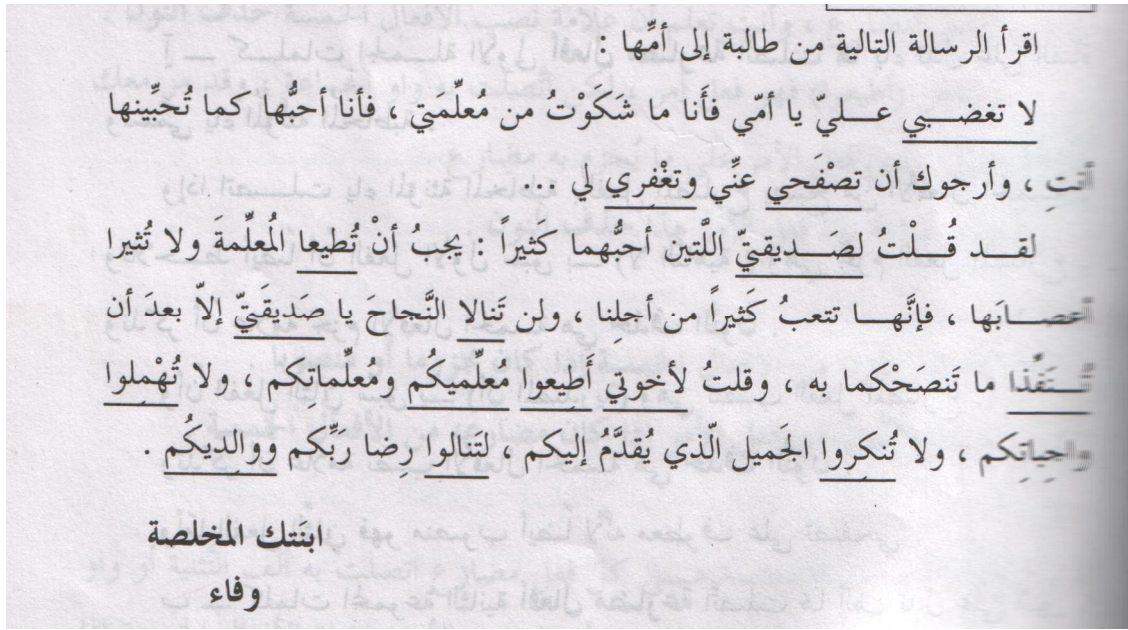 اقرأ الرسالة التالية من طالبة إلى أمِّها :
لا تغضبي عليّ يا أمّي فأَنا ما شَكَوْتُ من مُعلِّمَتي ، فأنا أحبُّها كما تُحَبِّينها
أنتِ ، وأرجوك أن تصْفَحي عنِّي وتغْفِري لي ...
لقد قُلْتُ لصَديقتيّ اللَّتين أحبُّهما كَثيراً : يجبُ أنْ تُطيعا المُعلِّمةَ ولا تُثيرا
أعصابَها ، فإنَّها تتعبُ كَثيراً من أجلِنا ، ولن تَنالا النَّجاحَ يا صَديقَتيّ إلاّ بعدَ أن
تُنَفِّذا ما تَنصَحْكما به ، وقلتُ لأخوتي أَطِيعوا مُعلِّميكُم ومُعلِّماتِكم ، ولا تُهْمِلوا
واجِباتِكم ، ولا تُنكِروا الجَميل الّذي يُقدَّمُ إليكم ، لتَنالوا رِضا رَبِّكم ووالديكُم .
ابنَتك المخلصة
وفاء